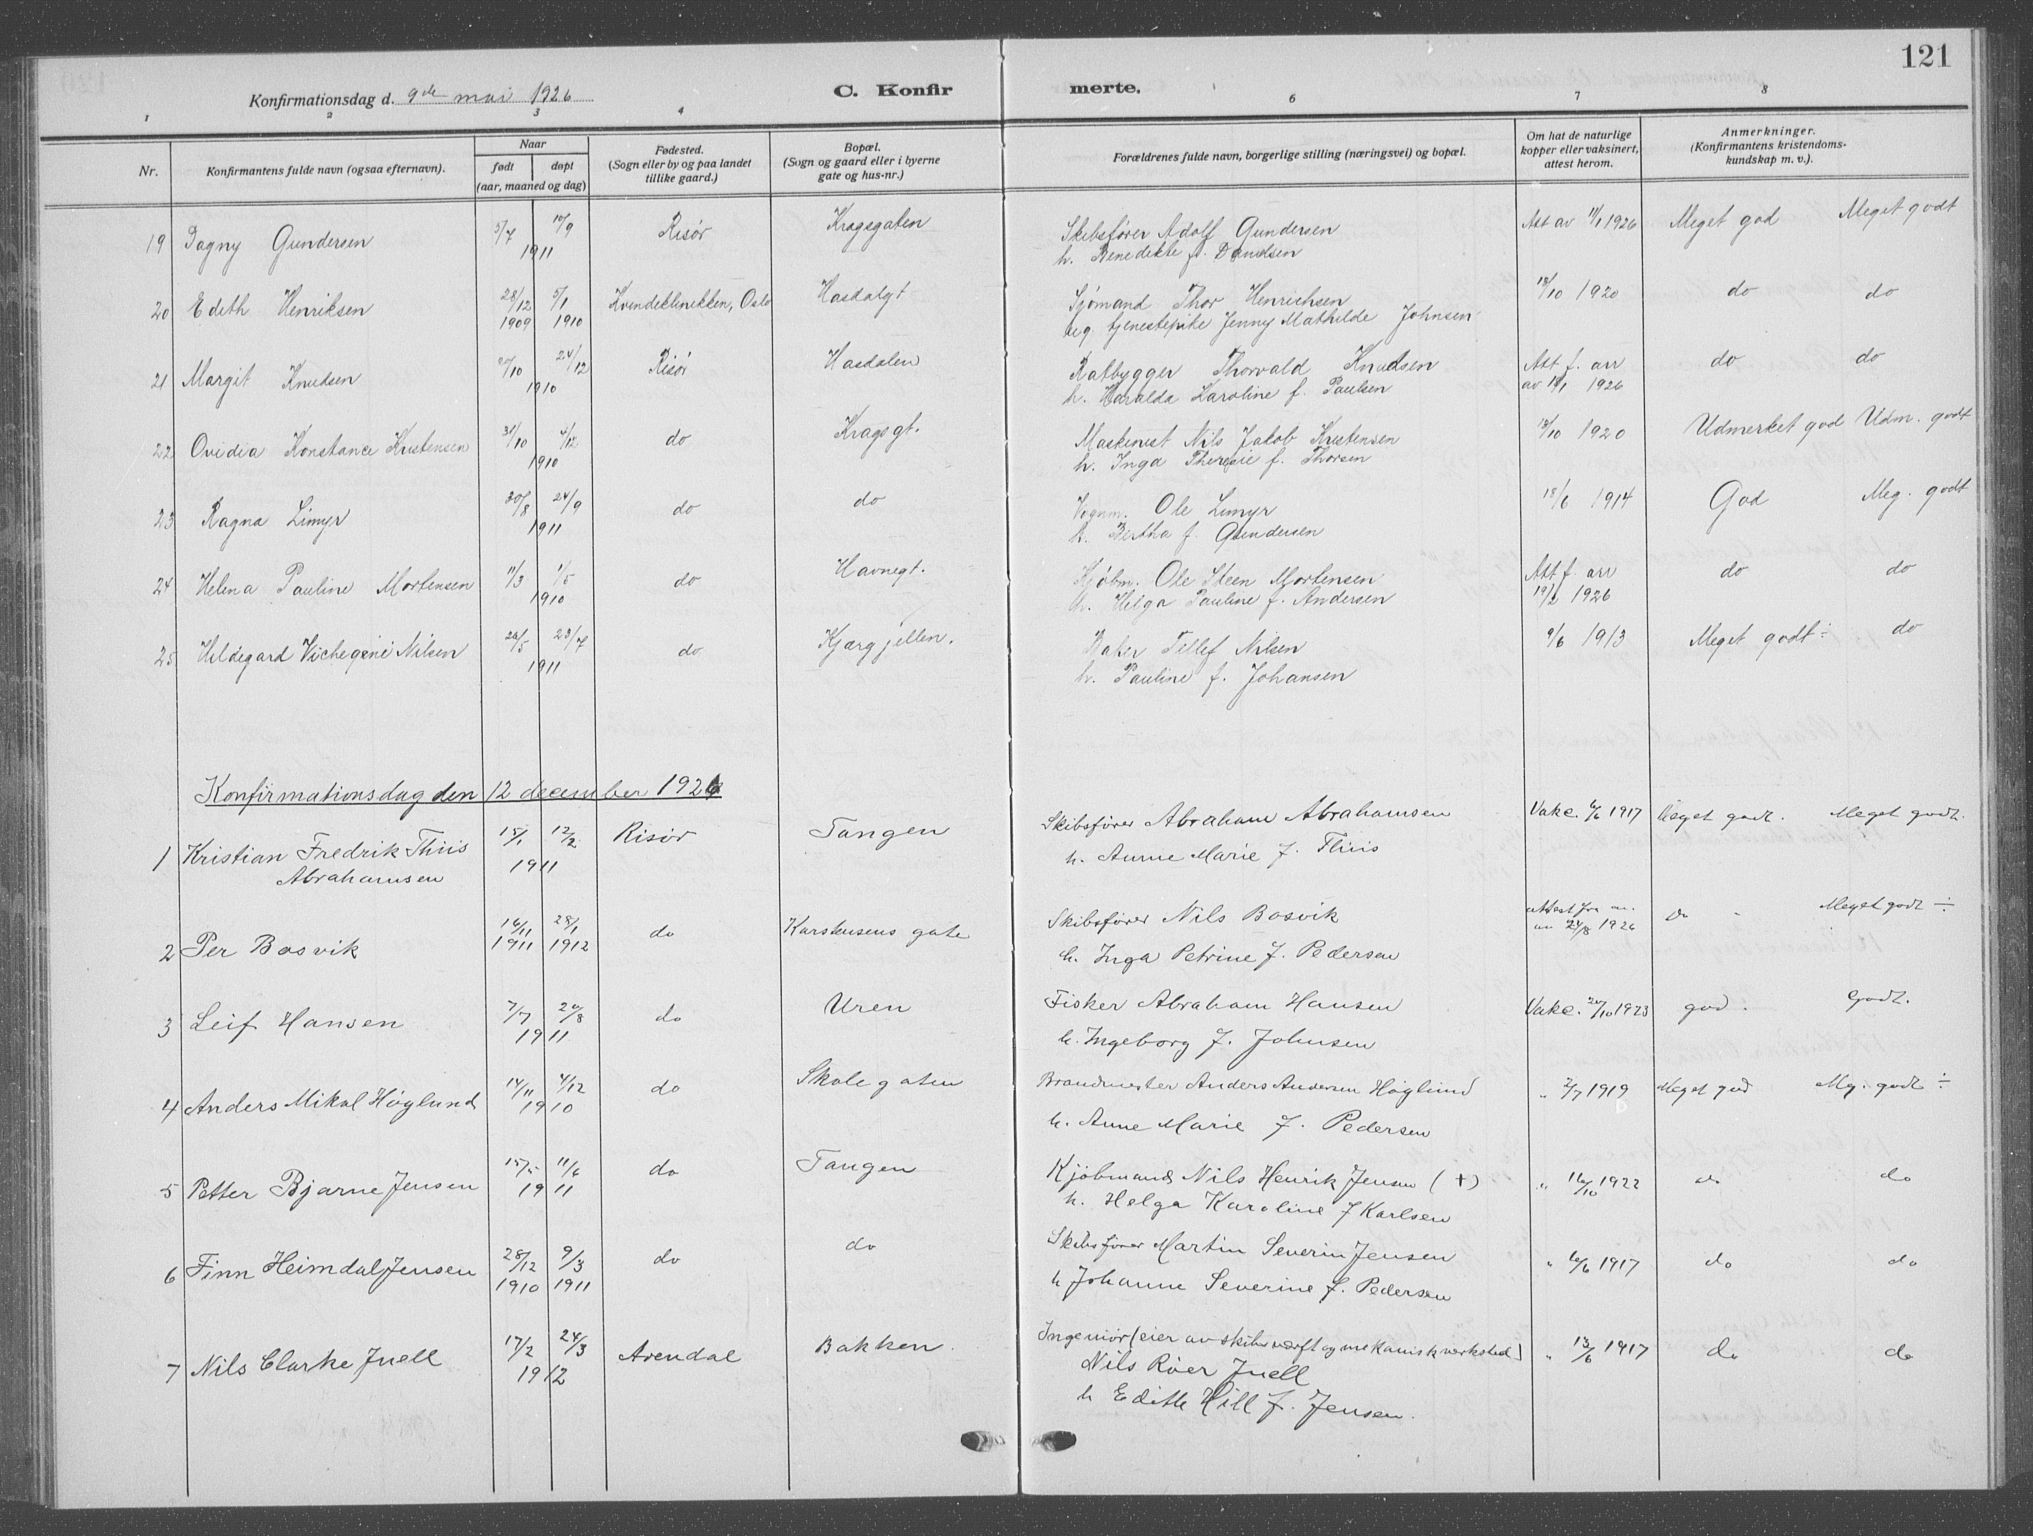 121
Konfirmationsdag d. 9de mai 1926 C. Konfir merte.
1 2 3 4 6 7 8
Nr. Konfirmantens fulde navn (ogsaa efternavn). Naar født døpt (aar, maaned og dag) Fødested. (Sogn eller by og paa landet tillike gaard.) Bopæl. (Sogn og gaard eller i byerne gate og hus-nr.) Forældrenes fulde navn, borgerlige stilling (næringsvei) og bopæl. Om hat de naturlige kopper eller vaksinert, attest herom. Anmerkninger. (Konfirmantens kristendoms-kundskap m. v.).
19 Dagny Gundersen 5/7 10/9 Risør Kragsgaten Skibsfører Adolf Gundersen Att av 11/1 1926 Meget god Meget godt
1911 h. Benedikte f. Danielsen
20 Edith Henriksen 28/12 5/1 Kvindeklinikken, Oslo Hasdalgt Sjømand Thor Henrichsen 18/10 1920 do do
1909 1910 ug. tjenestepike Jenny Mathilde Johnsen
21 Margit Knudsen 20/10 24/12 Risør Hasdalen Baatbygger Thorvald Knudsen Att f. arr do do
1910 h. Haralda Karoline f. Paulsen av 18/1 1926
22 Ovidia Konstance Kristensen 31/10 4/12 do Kragsgt. Maskinist Nils Jakob Kristensen 18/10 1920 Udmerket god Udm. godt
1910 h. Inga Theresie f. Thorsen
23 Ragna Limyr 30/8 24/9 do do Vognm. Ole Limyr 18/6 1914 God Meg. godt
1911 h. Bertha f. Gundersen
24 Helena Pauline Mortensen 11/3 1/5 do Havnegt. Kjøbm. Ole Steen Mortensen Att f. arr do do
1910 h. Helga Pauline f. Andersen 19/2 1926
25 Hildegard Vichegine Nilsen 26/5 23/7 do Kjærgjellen. Baker Tellef Nilsen 9/6 1913 Meget godt ÷ do
1911 h. Pauline f. Johansen
Konfirmationsdag den 12 december 1926
1 Kristian Fredrik Thiis 15/1 12/2 Risør Tangen Skibsfører Abraham Abrahamsen Vakc. 6/6 1917 Meget godt. Meget godt.
Abrahamsen 1911 h. Anne Marie f. Thiis
2 Per Bosvik 16/11 28/1 do Karstensens gate Skibsfører Nils Bosvik attest fra 24/8 1926 do Meget godt ÷
1911 1912 h. Inga Petrine f. Pedersen
3 Leif Hansen 7/7 20/8 do Uren Fisker Abraham Hansen Vakc. 20/10 1923 god. Godt.
1911 h. Ingeborg f. Johnsen
4 Anders Mikal Høglund 14/11 4/12 do Skolegaten Brandmester Anders Andersen Høglund " 2/7 1919 Meget god Mg. godt ÷
1910 h. Anne Marie f. Pedersen
5 Petter Bjarne Jensen 15/5 11/6 do Tangen Kjöbmand Nils Henrik Jensen (+) " 16/10 1922 do do
1911 h. Helga Karoline f Karlsen
6 Finn Heimdal Jensen 28/12 9/3 do do Skibsfører Martin Severin Jensen " 6/6 1917 do do
1910 1911 h Johanne Severine f. Pedersen
7 Nils Clarke Juell 17/2 24/3 Arendal Bakken. Ingeniör (eier av skibsværft og mekanisk verksted) " 13/6 1917 do do
1912 Nils Röer Juell
h Edith Hill f. Jensen.